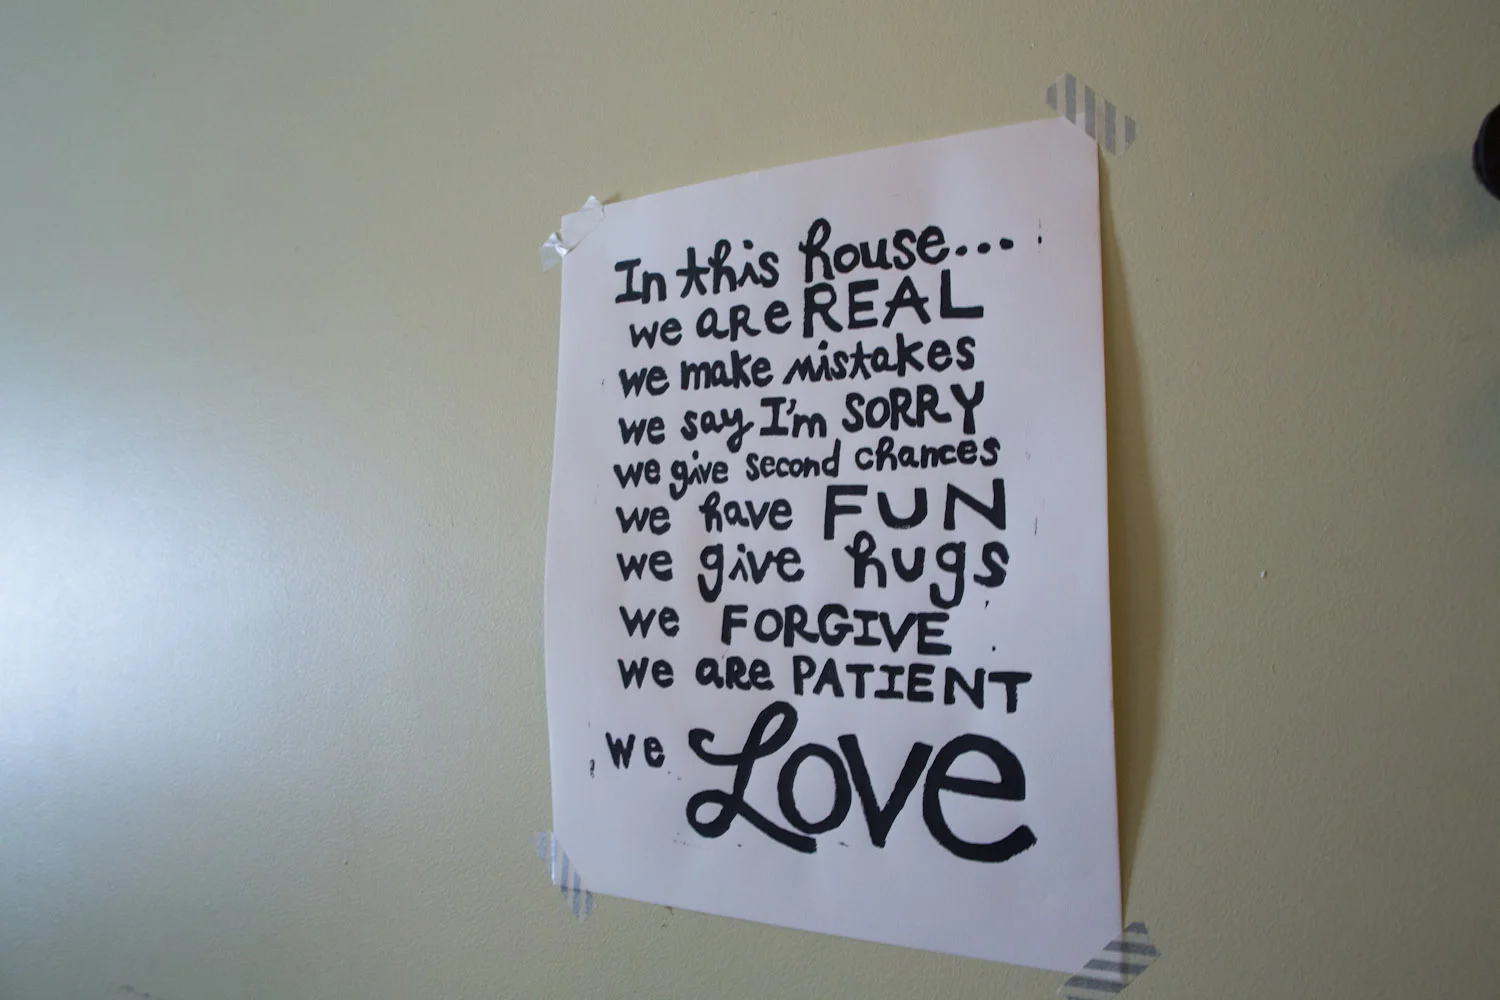 In this house...
we are REAL
we make mistakes
we say I'm SORRY
we give second chances
we have FUN
we give hugs
we FORGIVE
we are PATIENT
we Love